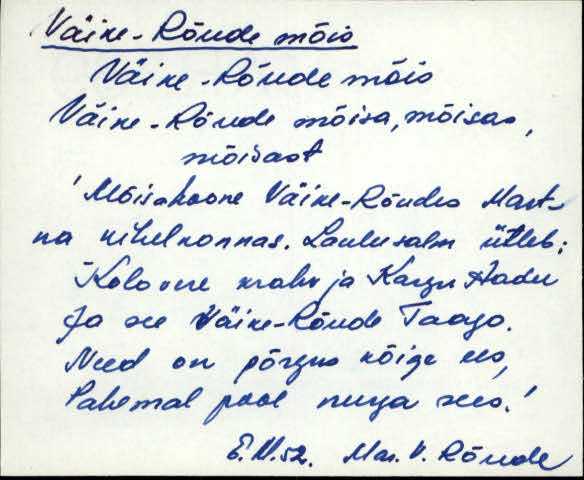 Väike-Rõude mõis
Väike-Rõude mõis
Väike-Rõude mõisa, mõisas,
mõisast
'Mõisahoone Väike-Rõudes Mart-
na kihelkonnas. Laulusalm ütleb:
Kolovere krahv ja Kargu Aadu
Ja see Väike-Rõude Taago.
Need on põrgus kõige ees,
Pahemal pool nurga sees.'
Mar. V. Rõude